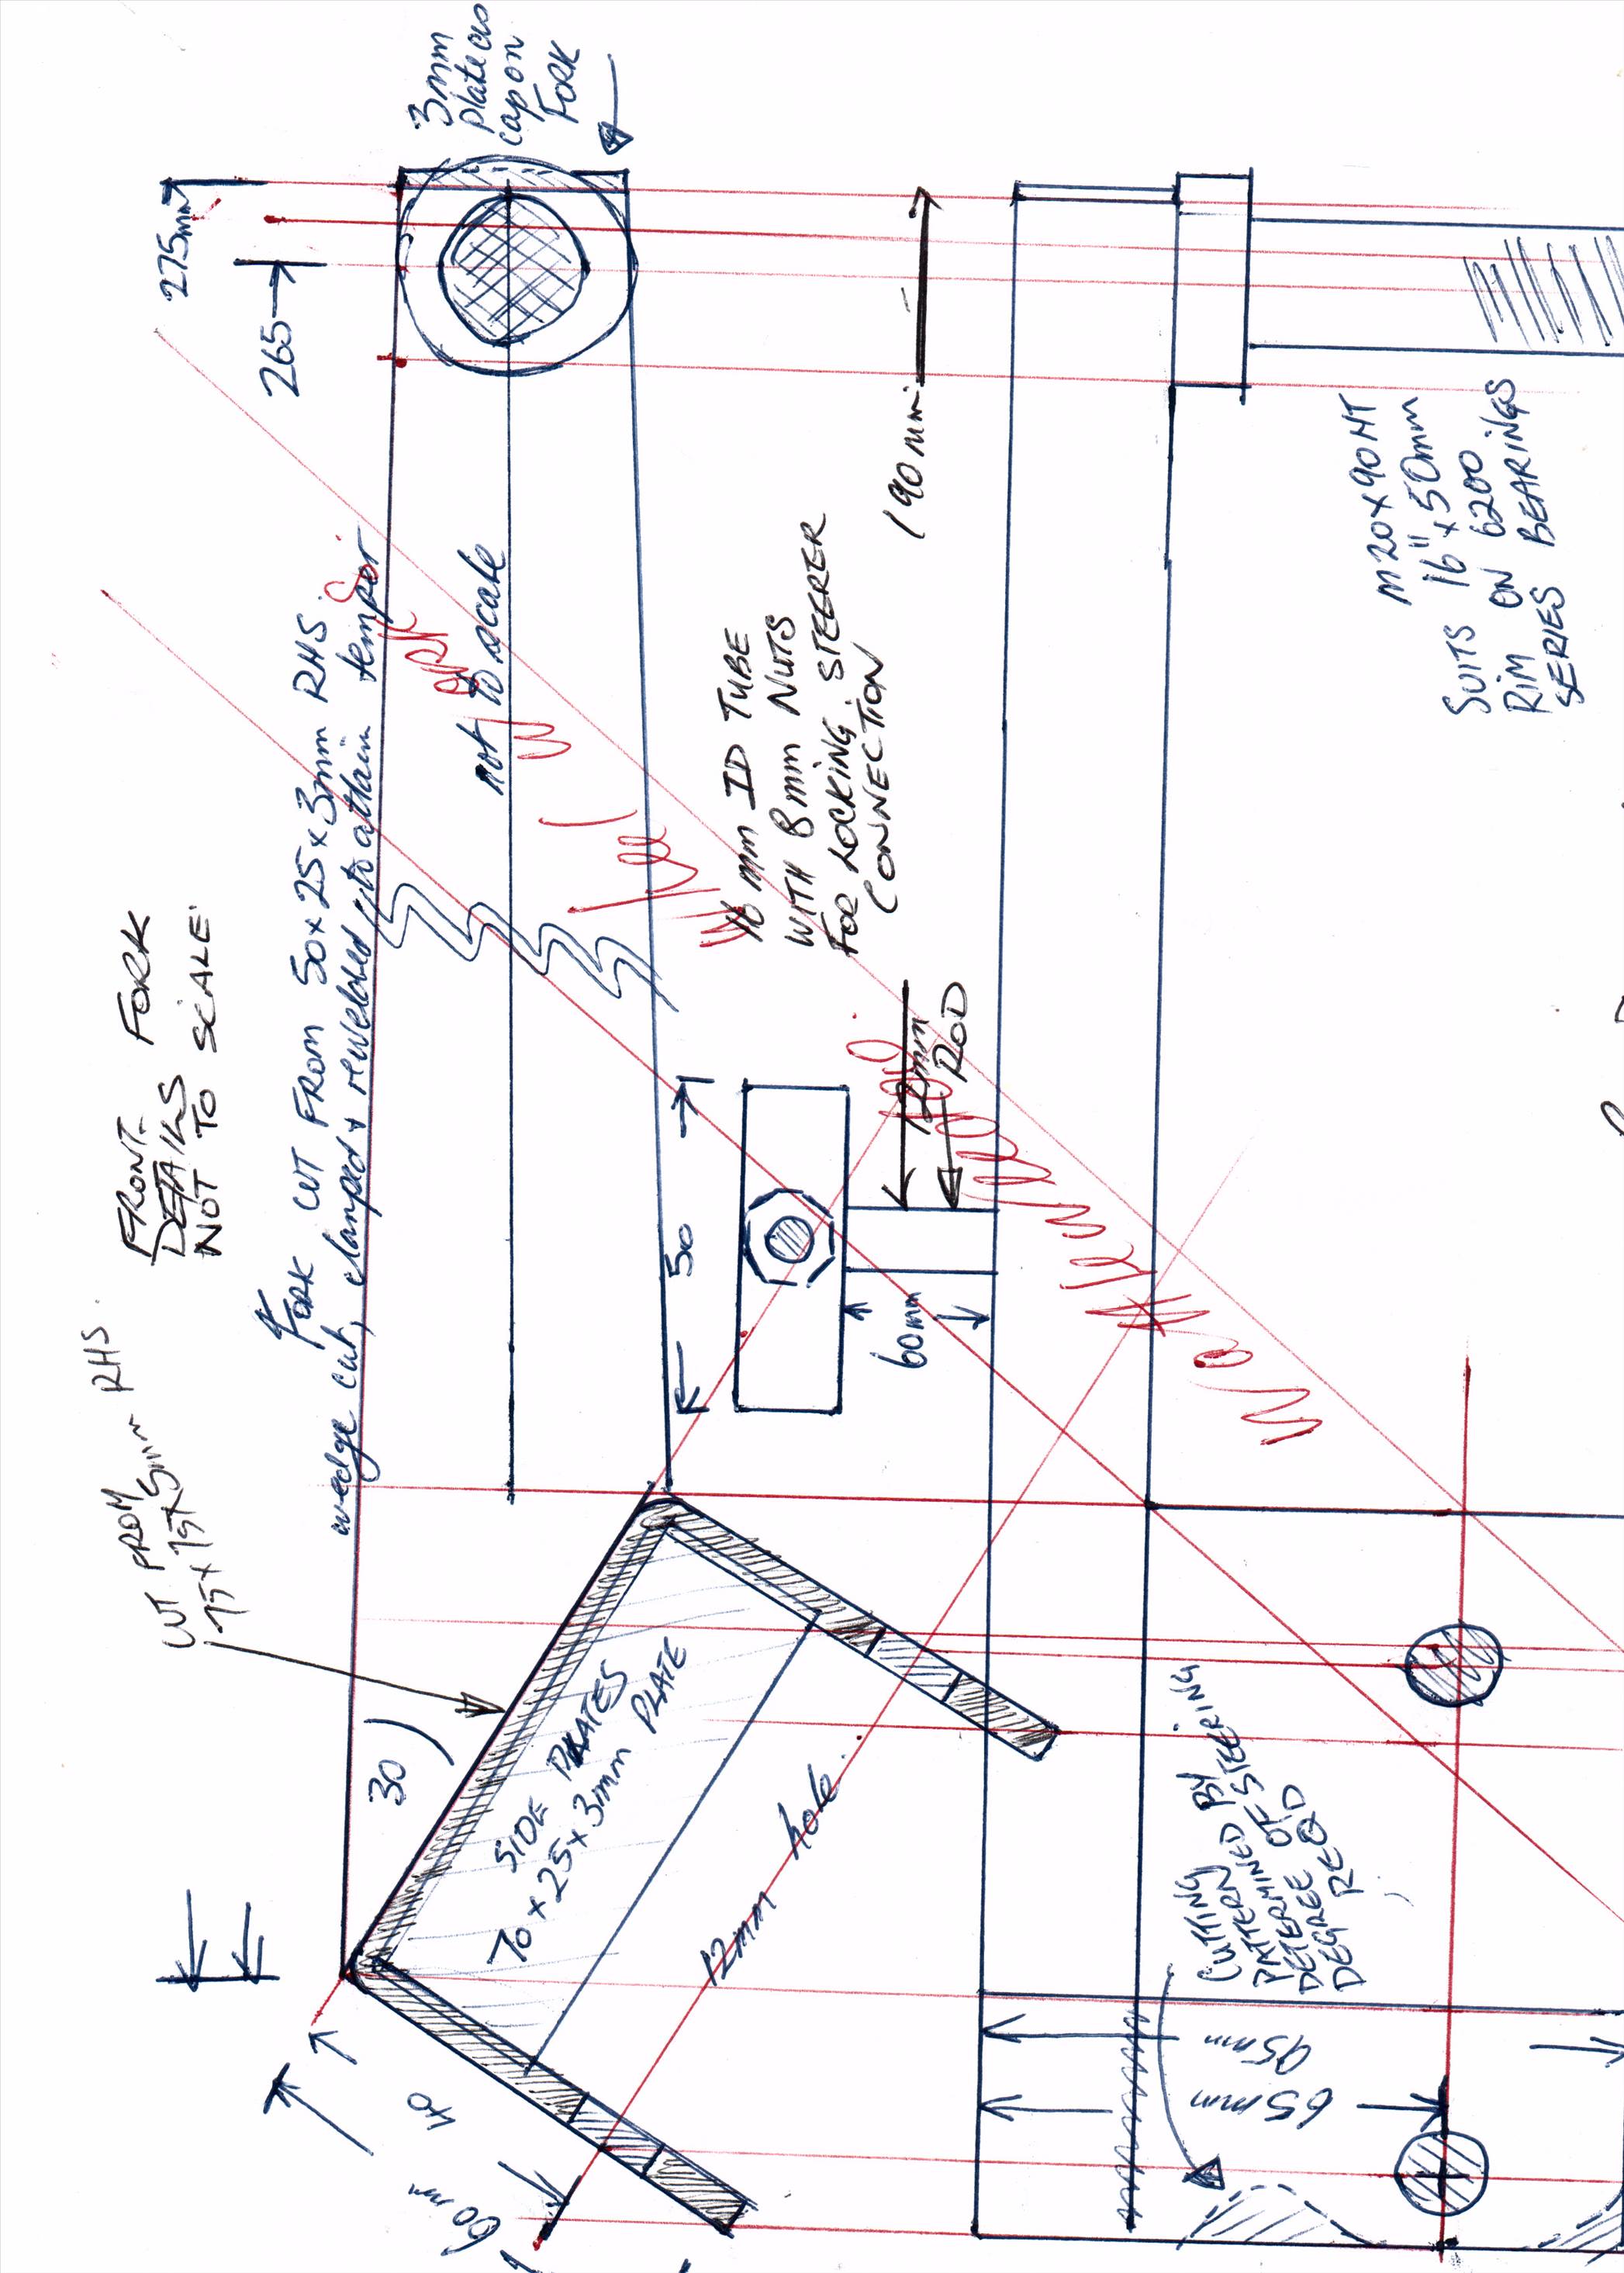 FRONT FORK
DETAILS
NOT TO SCALE
CUT FROM
75 x 75 x 5mm RHS
FORK CUT FROM 50 x 25 x 3mm RHS
wedge cut, clamped + rewelded to attain temper
3mm
plate as
cap on
FORK
275mm
265
not to scale
16 mm ID TUBE
WITH 8mm NUTS
FOR LOCKING STEERER
CONNECTION
190mm
50
60mm
12mm
ROD
M20x90HT
SUITS 16" x 50mm
RIM ON 6200
SERIES BEARINGS
30
SIDE PLATES
70 x 25 x 3mm PLATE
12mm hole
40
60mm
CUTTING
PATTERN BY
DETERMINED
DEGREE OF STEERING
REQD
95mm
65mm